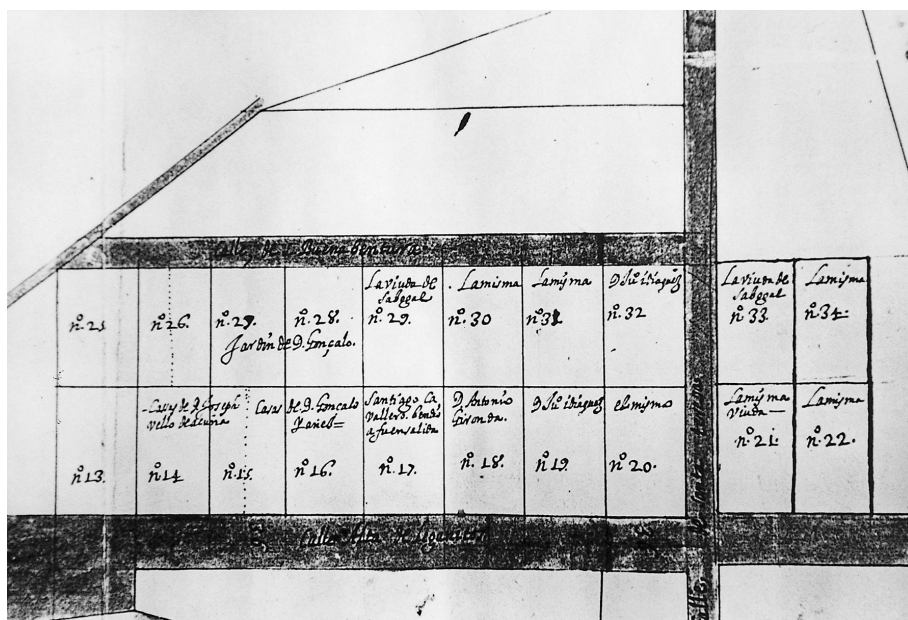 Calle de S. Buenabentura
nº.25
nº.26.
nº.27.
nº.28.
Jardin de D. Gonçalo.
La viuda de
Sabogal
nº.29.
La misma
nº.30
La mysma
nº.31
D. Juº idiaquez
nº.32
La viuda de
Sabogal
nº.33.
La misma
nº.34
nº.13.
Casas de D. Joseph
vello de acuña
nº.14
nº.15.
Casas de D. Gonçalo
Yañes=
nº.16.
Santiago Ca
vallero bendº
a fuensalida
nº.17.
D. Antonio
Gironda.
nº.18.
D. Juº idiaquez
nº.19
el mismo
nº.20.
La mysma
viuda
nº.21.
La misma
nº.22.
Calle Alta de
Calle